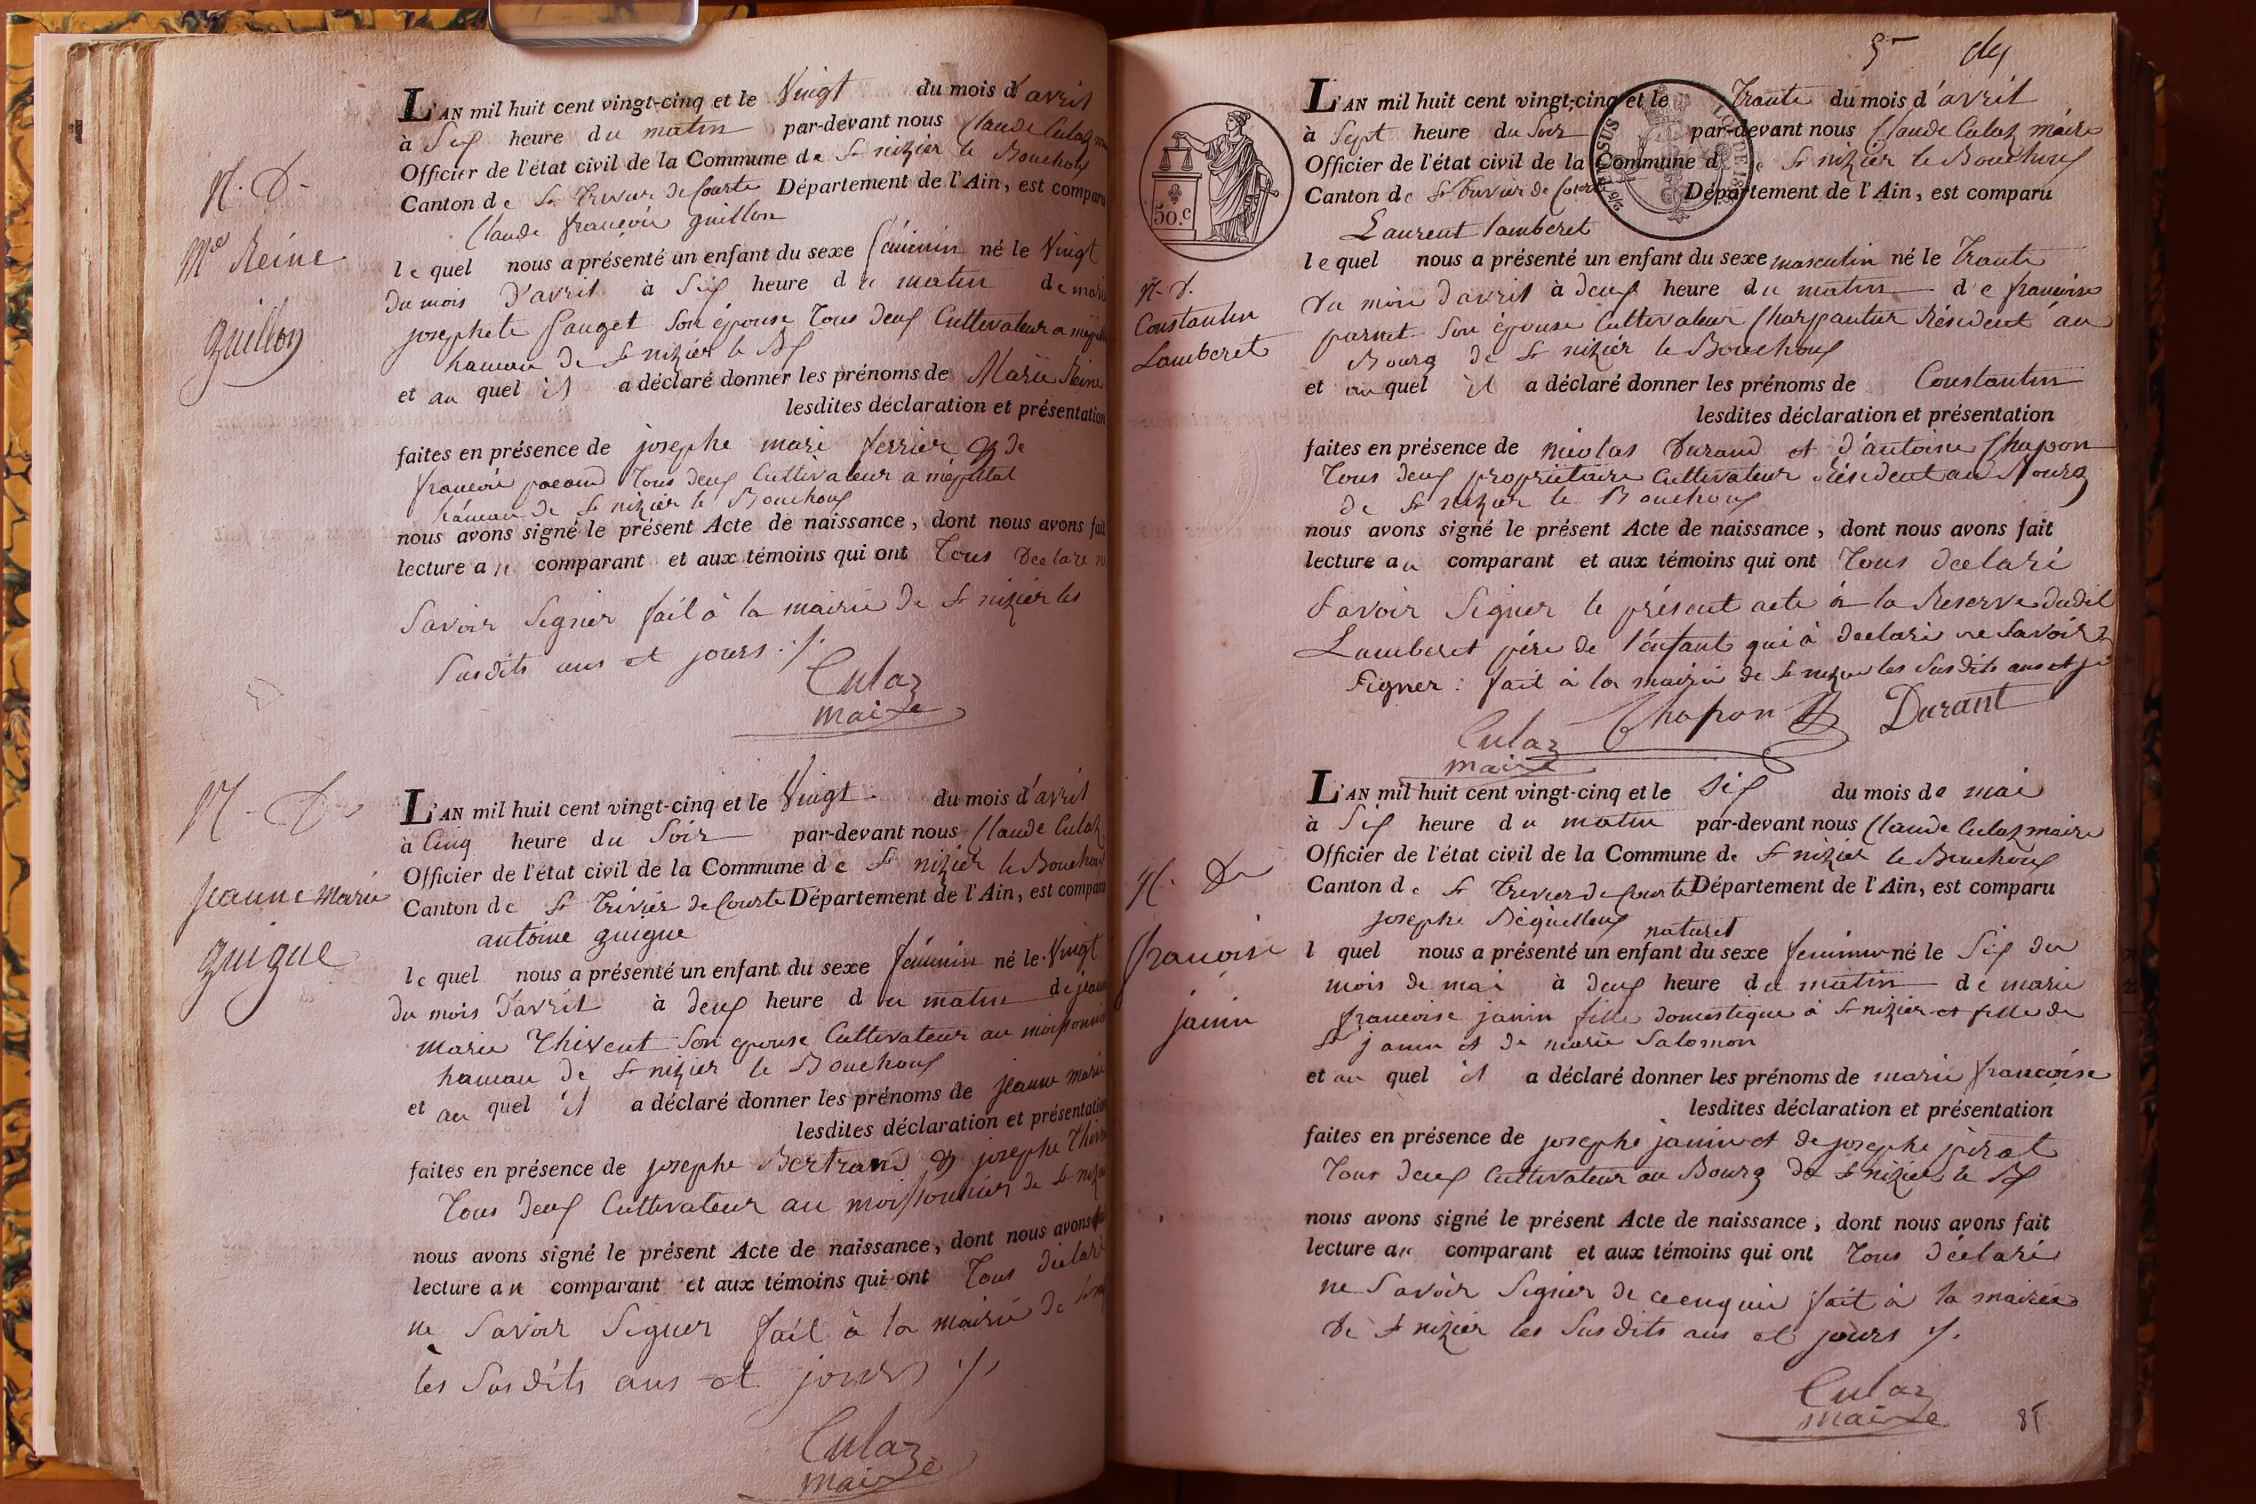 N. D.
Mie Reine
guillon
L'AN mil huit cent vingt-cinq et le Vingt du mois d'avril
à Six heure du matin par-devant nous Claude Culaz
Officier de l'état civil de la Commune de St nizier le Bouchoux
Canton de St Trivier de Courte Département de l'Ain, est comparu
Claude françois guillon
lequel nous a présenté un enfant du sexe féminin né le Vingt
du mois d'avril à Six heure du matin de marie
josephete Gauget Son épouse Tous deux Cultivateur a
hameau de St nizier le Bx
et au quel il a déclaré donner les prénoms de Marie Reine
lesdites déclaration et présentation
faites en présence de josephe marie ferrier & de
françois pacaud Tous deux Cultivateur a
hameau de St nizier le Bouchoux
nous avons signé le présent Acte de naissance, dont nous avons fait
lecture au comparant et aux témoins qui ont Tous Declare ne
Savoir Signer fait à la mairie de St nizier les
Susdits ans et jours ./.
Culaz
maire
N. D.
jeanne Marie
guigue
L'AN mil huit cent vingt-cinq et le Vingt du mois d'avril
à Cinq heure du Soir par-devant nous Claude Culaz
Officier de l'état civil de la Commune de St nizier le Bouchoux
Canton de St Trivier de Courte Département de l'Ain, est comparu
antoine guigue
lequel nous a présenté un enfant du sexe féminin né le Vingt
du mois d'avril à deux heure du matin de jeanne
marie Thivent Son epouse Cultivateur au moissonnier
hameau de St nizier le Bouchoux
et au quel il a déclaré donner les prénoms de jeanne marie
lesdites déclaration et présentation
faites en présence de josephe Bertrand & josephe
Tous deux Cultivateur au moissonnier de St nizier
nous avons signé le présent Acte de naissance, dont nous avons fait
lecture au comparant et aux témoins qui ont Tous déclaré
ne Savoir Signer fait à la mairie de
les Susdits ans et jours ./.
Culaz
maire
5
50.c
N. D.
Constantin
Lamberet
L'AN mil huit cent vingt-cinq et le Trante du mois d'avril
à Sept heure du Soir par-devant nous Claude Culaz maire
Officier de l'état civil de la Commune de St nizier le Bouchoux
Canton de St Trivier de Courte Département de l'Ain, est comparu
Laurent lamberet
lequel nous a présenté un enfant du sexe masculin né le Trante
du mois d'avril à deux heure du matin de françoise
parnet Son épouse Cultivateur Charpantier Résident au
Bourg de St nizier le Bouchoux
et au quel il a déclaré donner les prénoms de Constantin
lesdites déclaration et présentation
faites en présence de nicolas Durand et d'antoine Chapon
Tous deux propriétaire Cultivateur Résident au Bourg
de St nizier le Bouchoux
nous avons signé le présent Acte de naissance, dont nous avons fait
lecture au comparant et aux témoins qui ont Tous declaré
Savoir Signer le présent acte à la Reserve dudit
Lamberet père de l'énfant qui à declaré ne Savoir
Signer : fait à la mairie de St nizier les Susdits ans et
Chapon Durant
Culaz
maire
N. D.
francoise
janin
L'AN mil huit cent vingt-cinq et le Six du mois de mai
à Six heure du matin par-devant nous Claude Culaz maire
Officier de l'état civil de la Commune de St nizier le Bouchoux
Canton de St Trivier de Courte Département de l'Ain, est comparu
josephe Bequilleux
naturel
l quel nous a présenté un enfant du sexe feminin né le Six du
mois de mai à deux heure du matin de marie
francoise janin fille domestique à St nizier et fille de
St janin et de marie Salomon
et au quel il a déclaré donner les prénoms de marie francoise
lesdites déclaration et présentation
faites en présence de josephe janin et de josephe pirat
Tous deux Cultivateur au Bourg de St nizier le Bx
nous avons signé le présent Acte de naissance, dont nous avons fait
lecture au comparant et aux témoins qui ont Tous déclaré
ne Savoir Signer de ce enquis fait à la mairie
de St nizier les Susdits ans et jours ./.
Culaz
maire